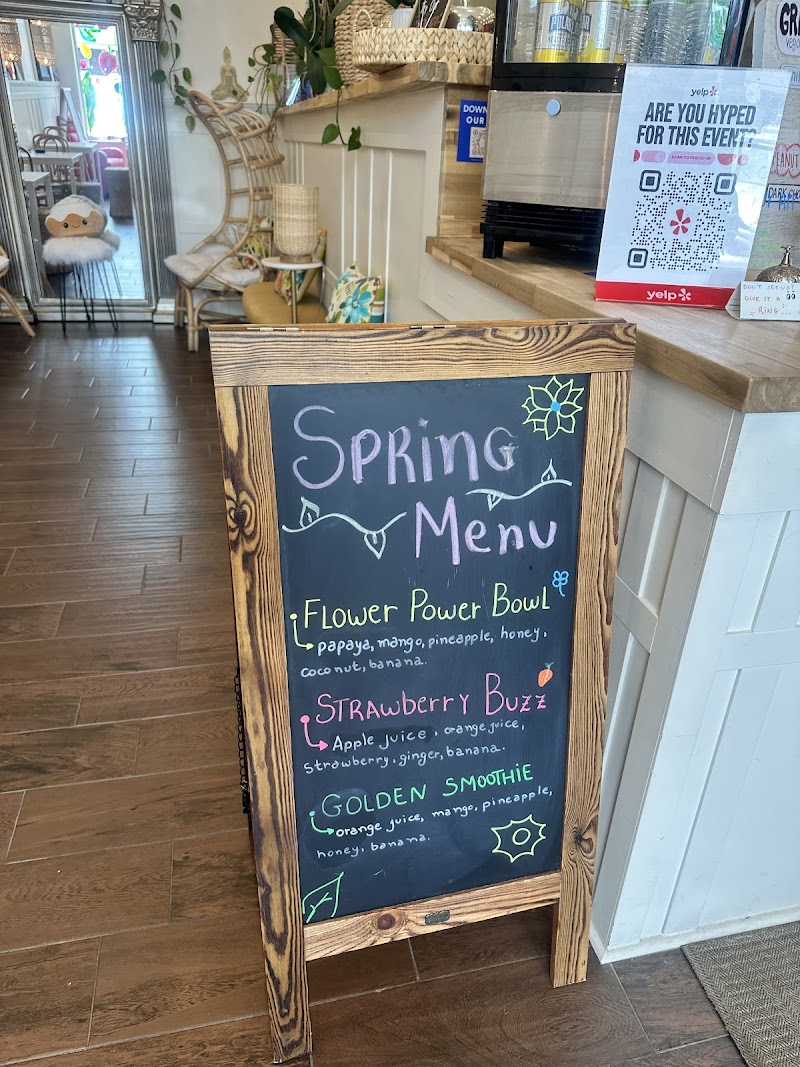 GR
DOWN
OUR
yelp
ARE YOU HYPED
FOR THIS EVENT?
SCAN TO CHECK-IN
yelp
DARK CHO
DON'T SEE US?
GIVE IT A
RING...
Spring
Menu
Flower Power Bowl
papaya, mango, pineapple, honey,
coconut, banana.
Strawberry Buzz
Apple juice, orange juice,
strawberry, ginger, banana.
Golden Smoothie
orange juice, mango, pineapple,
honey, banana.